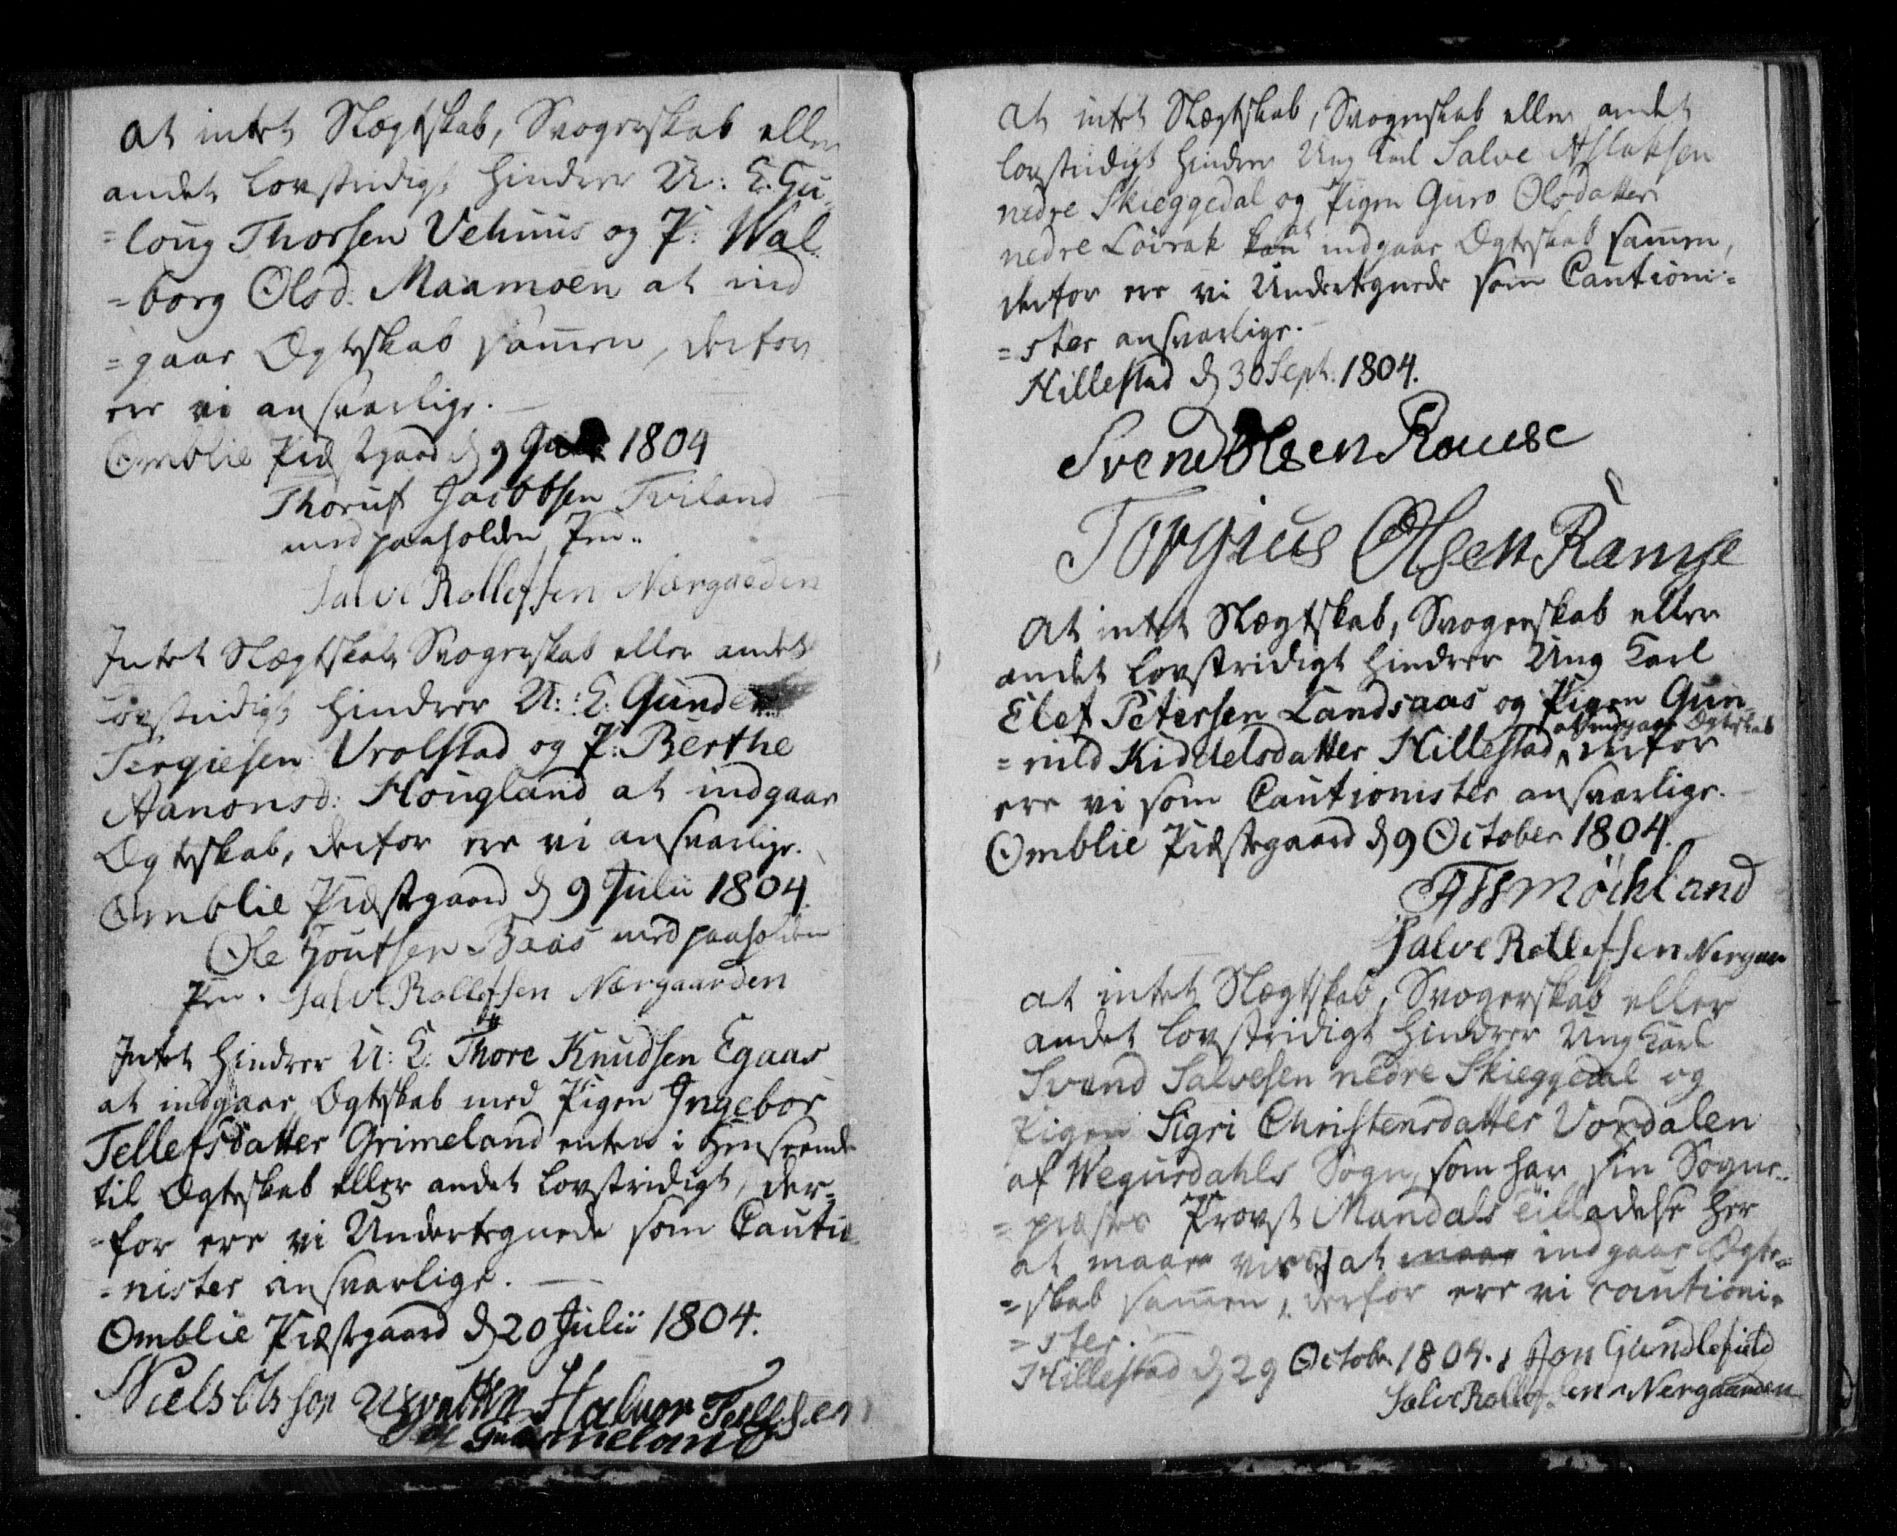 at intet Slægtskab, Svogerskab eller
andet lovstridigt hindrer U: K: Gu-
=loug Thorsen Vehuus og P: Wal-
=borg Olsd: Maamoen at ind
=gaae Ægteskab sammen, derfor
ere vi ansvarlige.
Omblie Præstgaard d 9 1804
Thoruf Jacobsen Tviland
med paaholden Pen..
Salve Rollefsen Nærgaarden
Intet Slægtskab, Svogerskab eller andet
Lovstridigt hindrer U: K: Gunder
Tergiesen Vrolstad og P: Berthe
Aanonsd: Hougland at indgaae
Ægteskab, derfor ere vi ansvarlige.
Omblie Præstgaard d 9 Julii 1804.
Ole Goutsen Baas med paaholden
Pen. Salve Rollefsen Nærgaarden
Intet hindrer U: K: Thore Knudsen Egaas
at indgaae Ægteskab med Pigen Ingebor
Tellefsdatter Grimeland enten i Henseende
til Ægteskab eller andet lovstridigt, der-
=for ere vi Undertegnede som Cautio-
=nister ansvarlige.
Omblie Præstgaard d 20 Julii 1804.
Niels Halvor Tellefsen
Grimeland
at intet Slægtskab, Svogerskab eller andet
lovstridigt hindrer Ung Karl Salve Aslaksen
nedre Skieggedal og Pigen Guro Olsdatter
nedre Löirak at indgaae Ægteskab sammen,
derfor ere vi Undertegnede som Cautioni-
=ster ansvarlige.
Hillestad d 30 Sept. 1804.
Svend Olsen Rause
Torgius Olsen Ramse
At intet Slægtskab, Svogerskab eller
andet lovstridigt hindrer Ung Karl
Elef Petersen Landsaas og Pigen Gun-
at indgaae Ægteskab
=nild Kiddelsdatter Hillestad, derfor
ere vi som Cautionister ansvarlige.
Omblie Præstegaard d 9 October 1804.
Salve Rollefsen Nergaar
at intet Slægtskab, Svogerskab eller
andet lovstridigt hindrer Ung Karl
Svend Salvesen nedre Skieggedal og
Pigen Sigri Christensdatter Vordalen
af Wegusdahls Sogn, som har sin Sogne-
=præstes Provst Mandals Tilladelse her
at maae vies, at maae indgaae Ægte-
=skab sammen, derfor ere vi cautioni-
=ster.
Hillestad d 29 Octobr. 1804. Jon Gundlefield
Salve Rollefsen Nergaarden